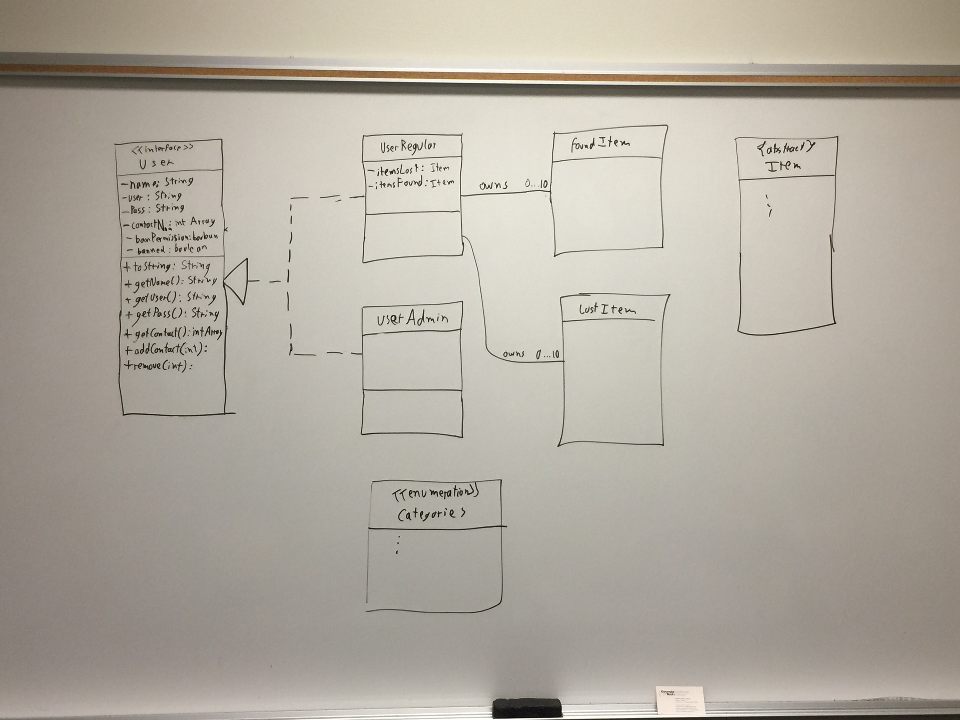 <<interface>>
User
-name: String
-user: String
-Pass: String
-contactNo: int Array
-banPermission: boolean
-banned: boolean
+toString: String
+getName(): String
+getUser(): String
+getPass(): String
+getContact(): intArray
+addContact(int):
+remove(int):
UserRegular
-itemsLost: Item
-itemsFound: Item
owns 0...10
FoundItem
{abstract}
Item
UserAdmin
owns 0...10
LostItem
<<enumeration>>
Categories